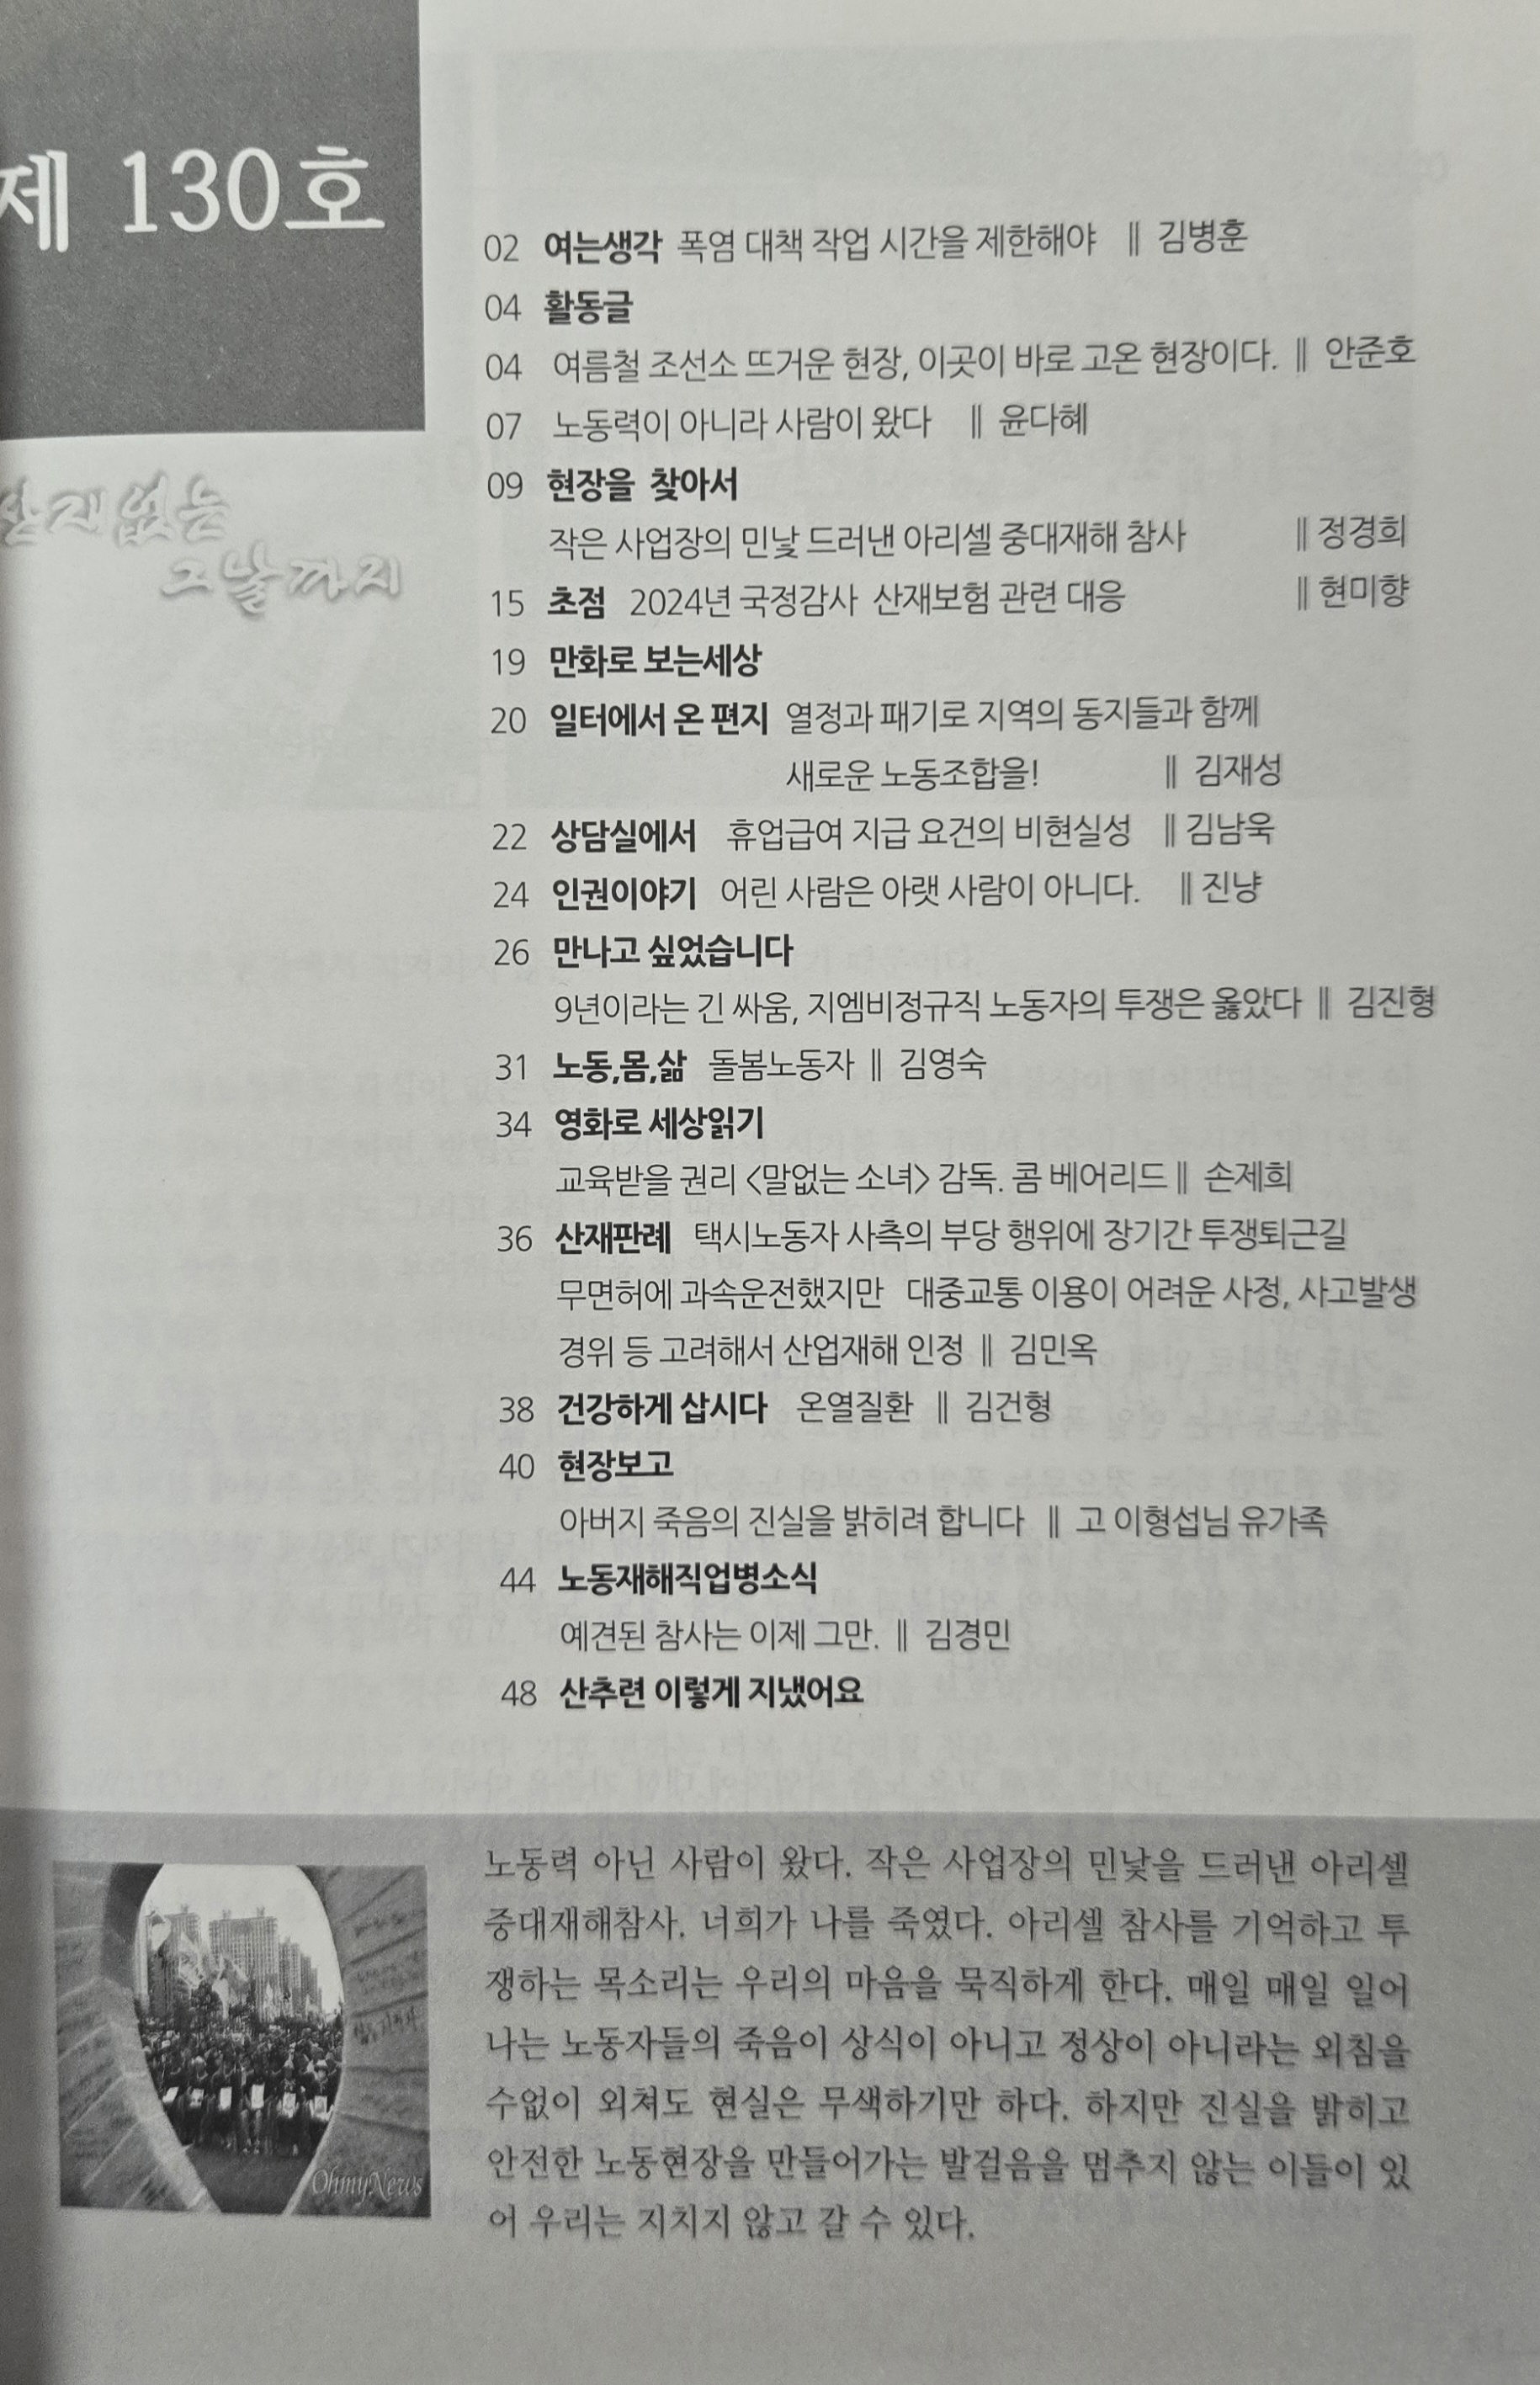 제 130호
산재없는
그날까지
02 여는생각 폭염 대책 작업 시간을 제한해야 ∥ 김병훈
04 활동글
04 여름철 조선소 뜨거운 현장, 이곳이 바로 고온 현장이다. ∥ 안준호
07 노동력이 아니라 사람이 왔다 ∥ 윤다혜
09 현장을 찾아서
작은 사업장의 민낯 드러낸 아리셀 중대재해 참사 ∥ 정경희
15 초점 2024년 국정감사 산재보험 관련 대응 ∥ 현미향
19 만화로 보는세상
20 일터에서 온 편지 열정과 패기로 지역의 동지들과 함께
새로운 노동조합을! ∥ 김재성
22 상담실에서 휴업급여 지급 요건의 비현실성 ∥ 김남욱
24 인권이야기 어린 사람은 아랫 사람이 아니다. ∥ 진냥
26 만나고 싶었습니다
9년이라는 긴 싸움, 지엠비정규직 노동자의 투쟁은 옳았다 ∥ 김진형
31 노동,몸,삶 돌봄노동자 ∥ 김영숙
34 영화로 세상읽기
교육받을 권리 <말없는 소녀> 감독. 콤 베어리드 ∥ 손제희
36 산재판례 택시노동자 사측의 부당 행위에 장기간 투쟁퇴근길
무면허에 과속운전했지만 대중교통 이용이 어려운 사정, 사고발생
경위 등 고려해서 산업재해 인정 ∥ 김민옥
38 건강하게 삽시다 온열질환 ∥ 김건형
40 현장보고
아버지 죽음의 진실을 밝히려 합니다 ∥ 고 이형섭님 유가족
44 노동재해직업병소식
예견된 참사는 이제 그만. ∥ 김경민
48 산추련 이렇게 지냈어요
노동력 아닌 사람이 왔다. 작은 사업장의 민낯을 드러낸 아리셀
중대재해참사. 너희가 나를 죽였다. 아리셀 참사를 기억하고 투
쟁하는 목소리는 우리의 마음을 묵직하게 한다. 매일 매일 일어
나는 노동자들의 죽음이 상식이 아니고 정상이 아니라는 외침을
수없이 외쳐도 현실은 무색하기만 하다. 하지만 진실을 밝히고
안전한 노동현장을 만들어가는 발걸음을 멈추지 않는 이들이 있
어 우리는 지치지 않고 갈 수 있다.
OhmyNews